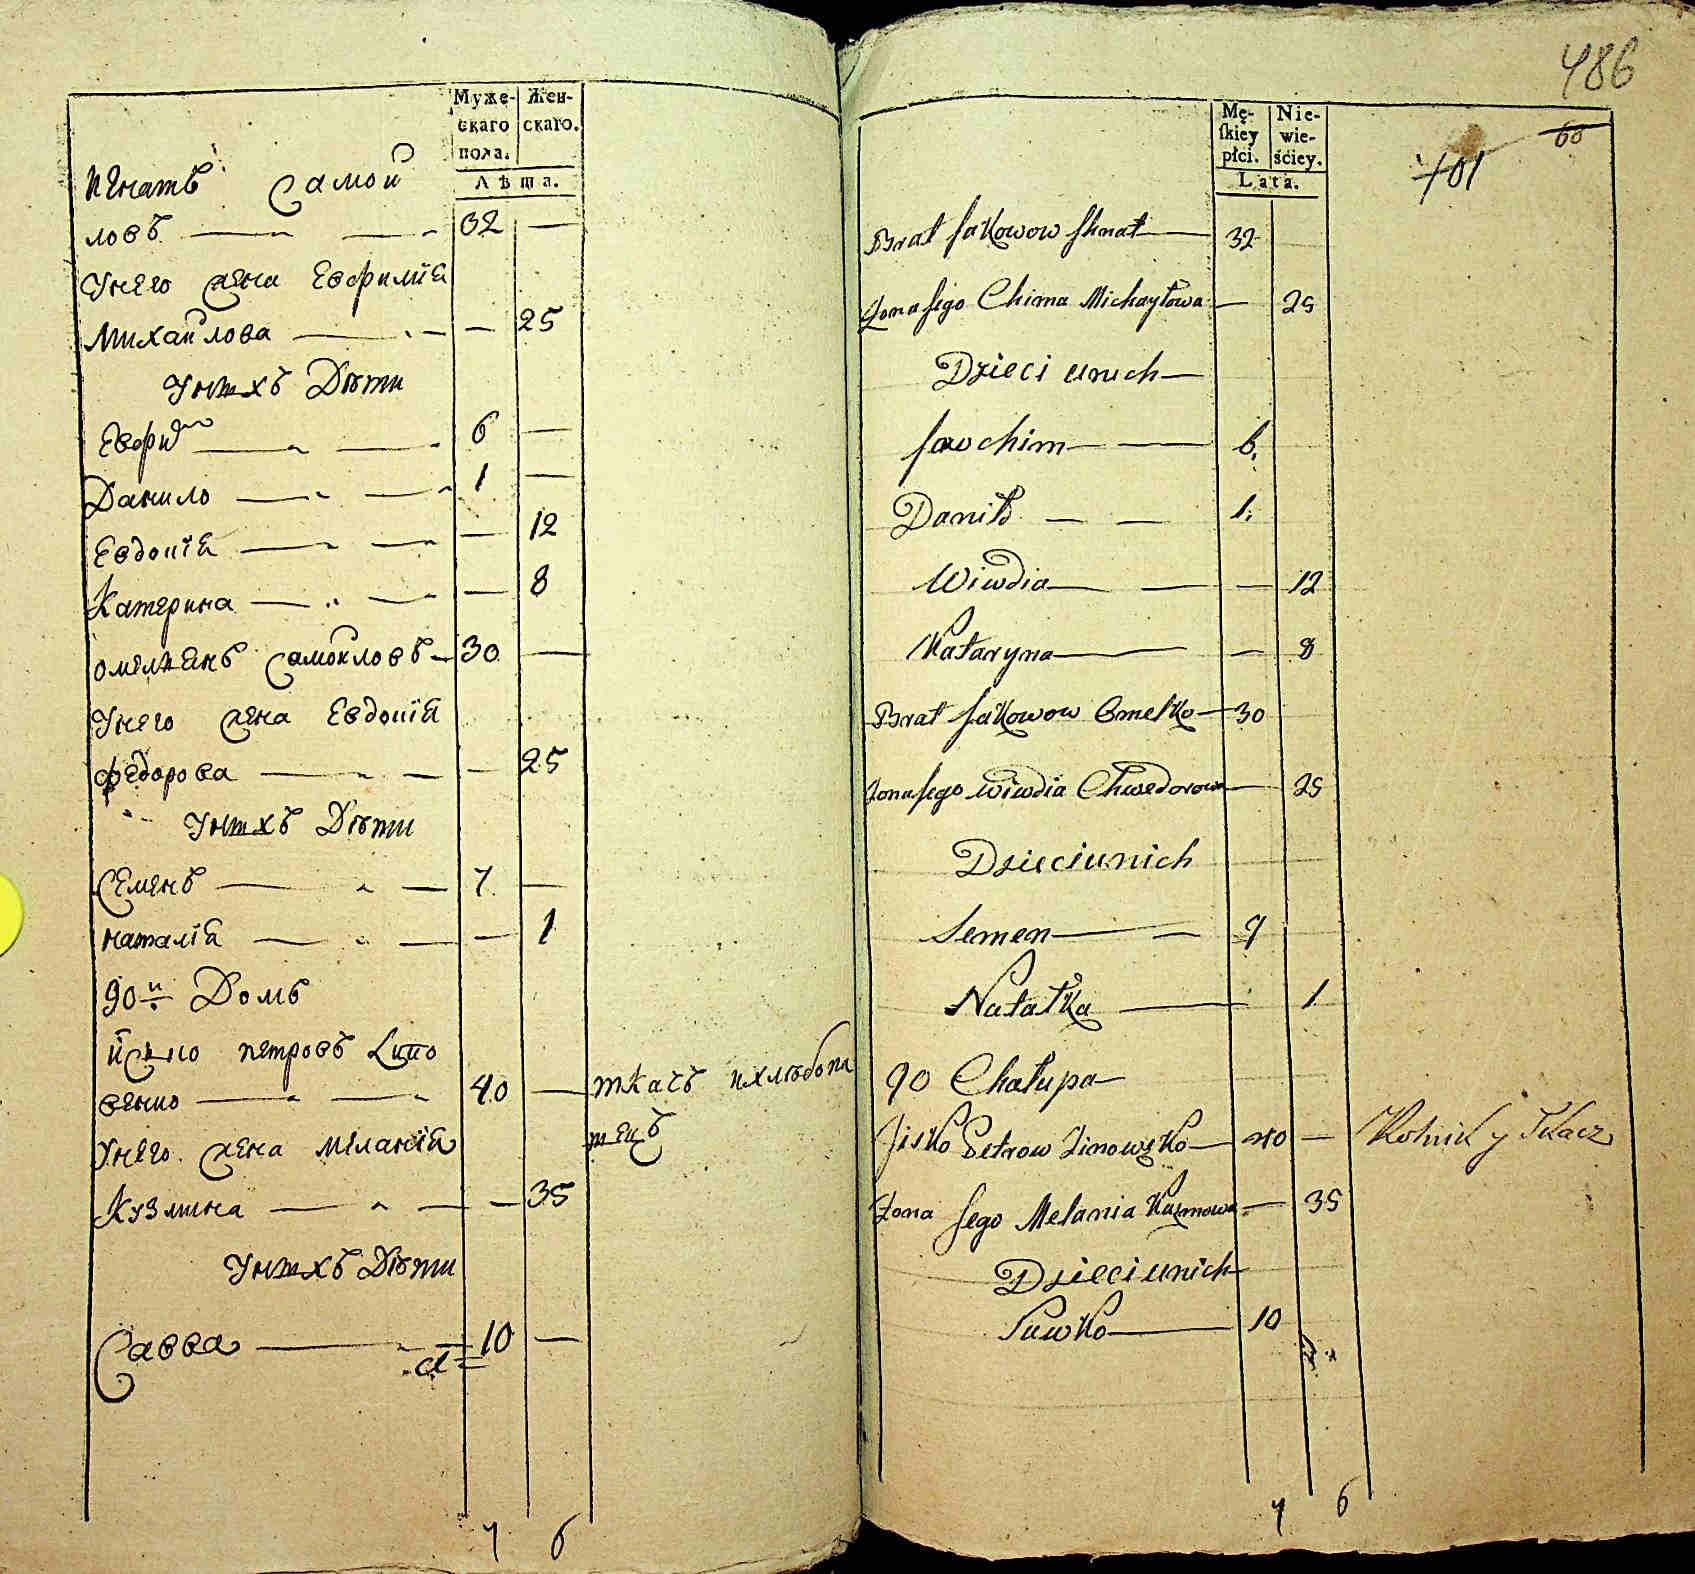 Муже-
скаго
пола.
Жен-
скаго.
Лѣта.
Игнатъ Самой
ловъ 32 —
Унего жена Евфимія
Михайлова — 25
Унихъ Дѣти
6 —
Данило 1 —
Евдокія — 12
Катерина — 8
омельянъ Самойловъ 30 —
Унего жена Евдокія
федорова — 25
Унихъ Дѣти
Семенъ 7 —
наталія — 1
90й Домъ
петровъ
40 — ткачъ ихлѣбопа
шецъ
Унего жена меланія
Кузмина — 35
Унихъ Дѣти
Савва 10 —
7 6
486
Mę-
skiey
płci.
Nie-
wie-
ściey.
Lata.
60
701
Brat Jakowow Ihnat 32
Zona Jego Chima Michayłowa — 25
Dzieci unich
Jawchim 6.
Daniło 1.
Wiwdia — 12
Kataryna — 8
Brat Jakowow Omelko 30
Zona Jego Wiwdia Chwedorowa — 25
Dzieci unich
Semen 7
Natałka 1
90 Chałupa
Jisko Petrow 40 — Rolnik y Tkacz
Zona Jego Melania Kuzmowa — 35
Dzieci unich
Sawko 10
7 6